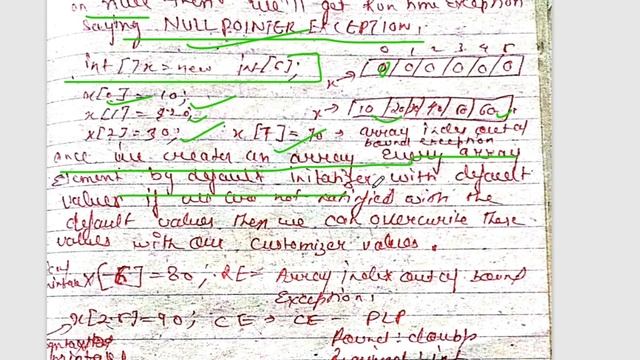 an null then we'll get Run time exception
saying NULL POINTER EXCEPTION.
0 1 2 3 4 5
int [] x = new int[6]; x→ 0 0 0 0 0 0
x[0] = 10;
x[1] = 20; x→ 10 20 30 40 50 60
x[2] = 30; x[7] = 70 → array index out of
bound exception
once we creates an array every array
element by default initalizer with default
values if we are not satisfied with the
default values then we can overwrite these
values with our customizer values.
x[-6] = 80; RE = Array index out of bound
Exception;
x[2.5] = 90; CE → CE - PLP
Found: double